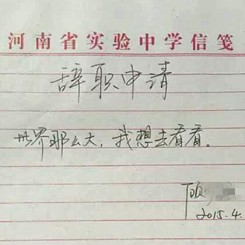 河南省实验中学信笺
辞职申请
世界那么大，我想去看看。
2015.4.